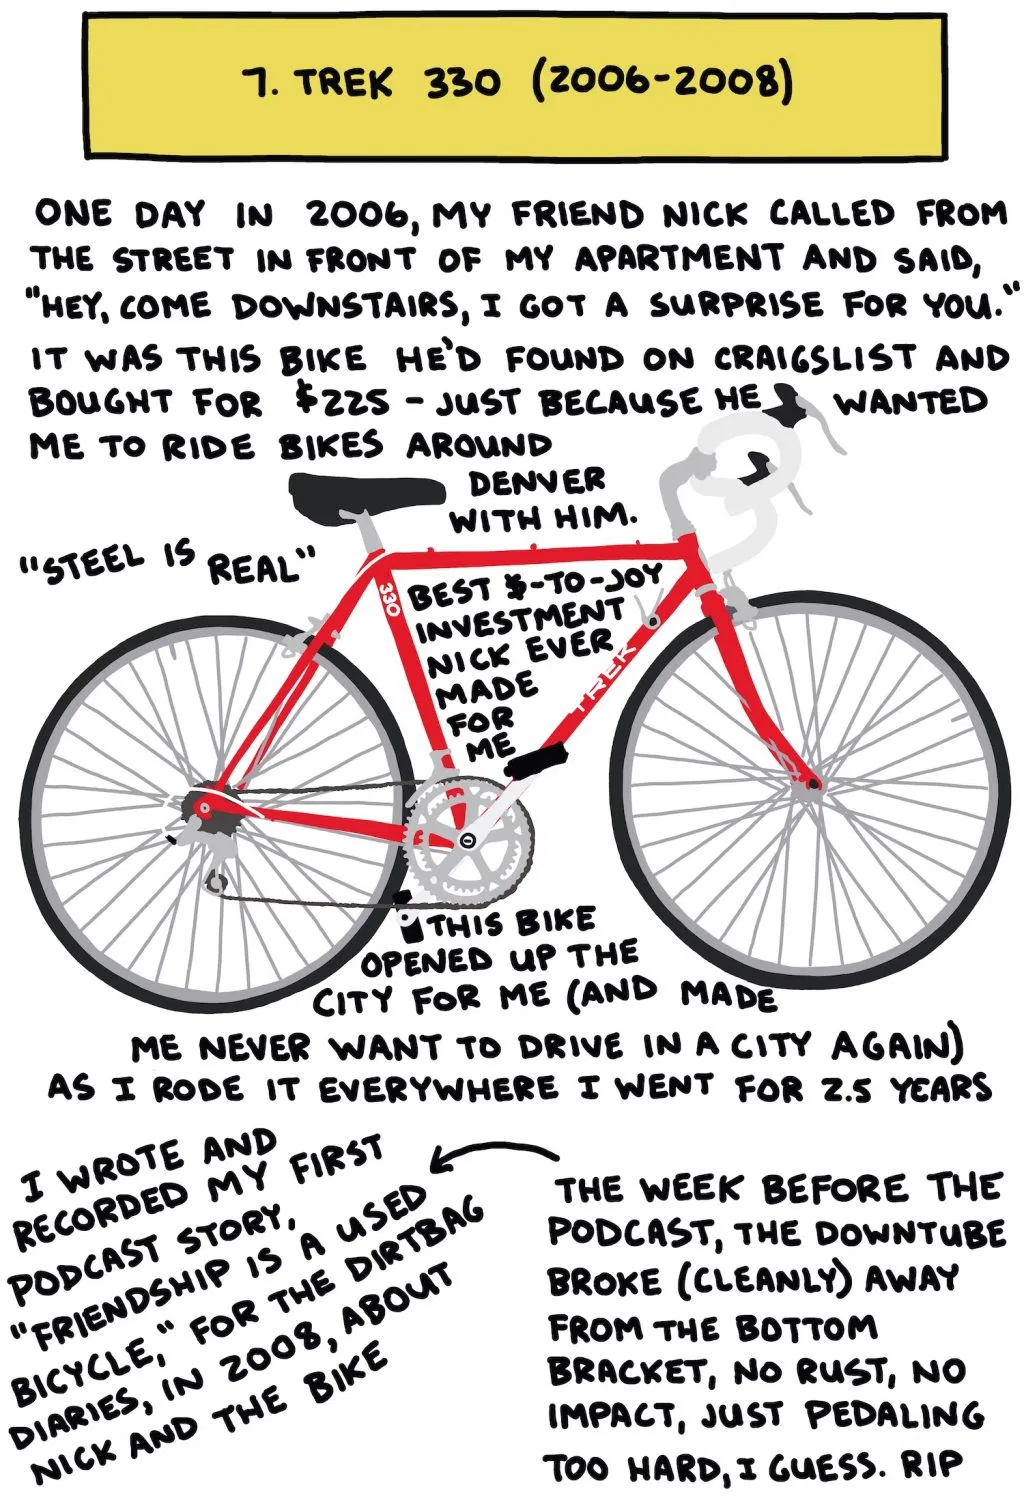 7. TREK 330 (2006-2008)
ONE DAY IN 2006, MY FRIEND NICK CALLED FROM
THE STREET IN FRONT OF MY APARTMENT AND SAID,
"HEY, COME DOWNSTAIRS, I GOT A SURPRISE FOR YOU."
IT WAS THIS BIKE HE'D FOUND ON CRAIGSLIST AND
BOUGHT FOR $225 - JUST BECAUSE HE WANTED
ME TO RIDE BIKES AROUND
DENVER
WITH HIM.
"STEEL IS REAL"
330
BEST $-TO-JOY
INVESTMENT
NICK EVER
MADE
FOR
ME
TREK
THIS BIKE
OPENED UP THE
CITY FOR ME (AND MADE
ME NEVER WANT TO DRIVE IN A CITY AGAIN)
AS I RODE IT EVERYWHERE I WENT FOR 2.5 YEARS
I WROTE AND
RECORDED MY FIRST
PODCAST STORY,
"FRIENDSHIP IS A USED
BICYCLE," FOR THE DIRTBAG
DIARIES, IN 2008, ABOUT
NICK AND THE BIKE
THE WEEK BEFORE THE
PODCAST, THE DOWNTUBE
BROKE (CLEANLY) AWAY
FROM THE BOTTOM
BRACKET, NO RUST, NO
IMPACT, JUST PEDALING
TOO HARD, I GUESS. RIP